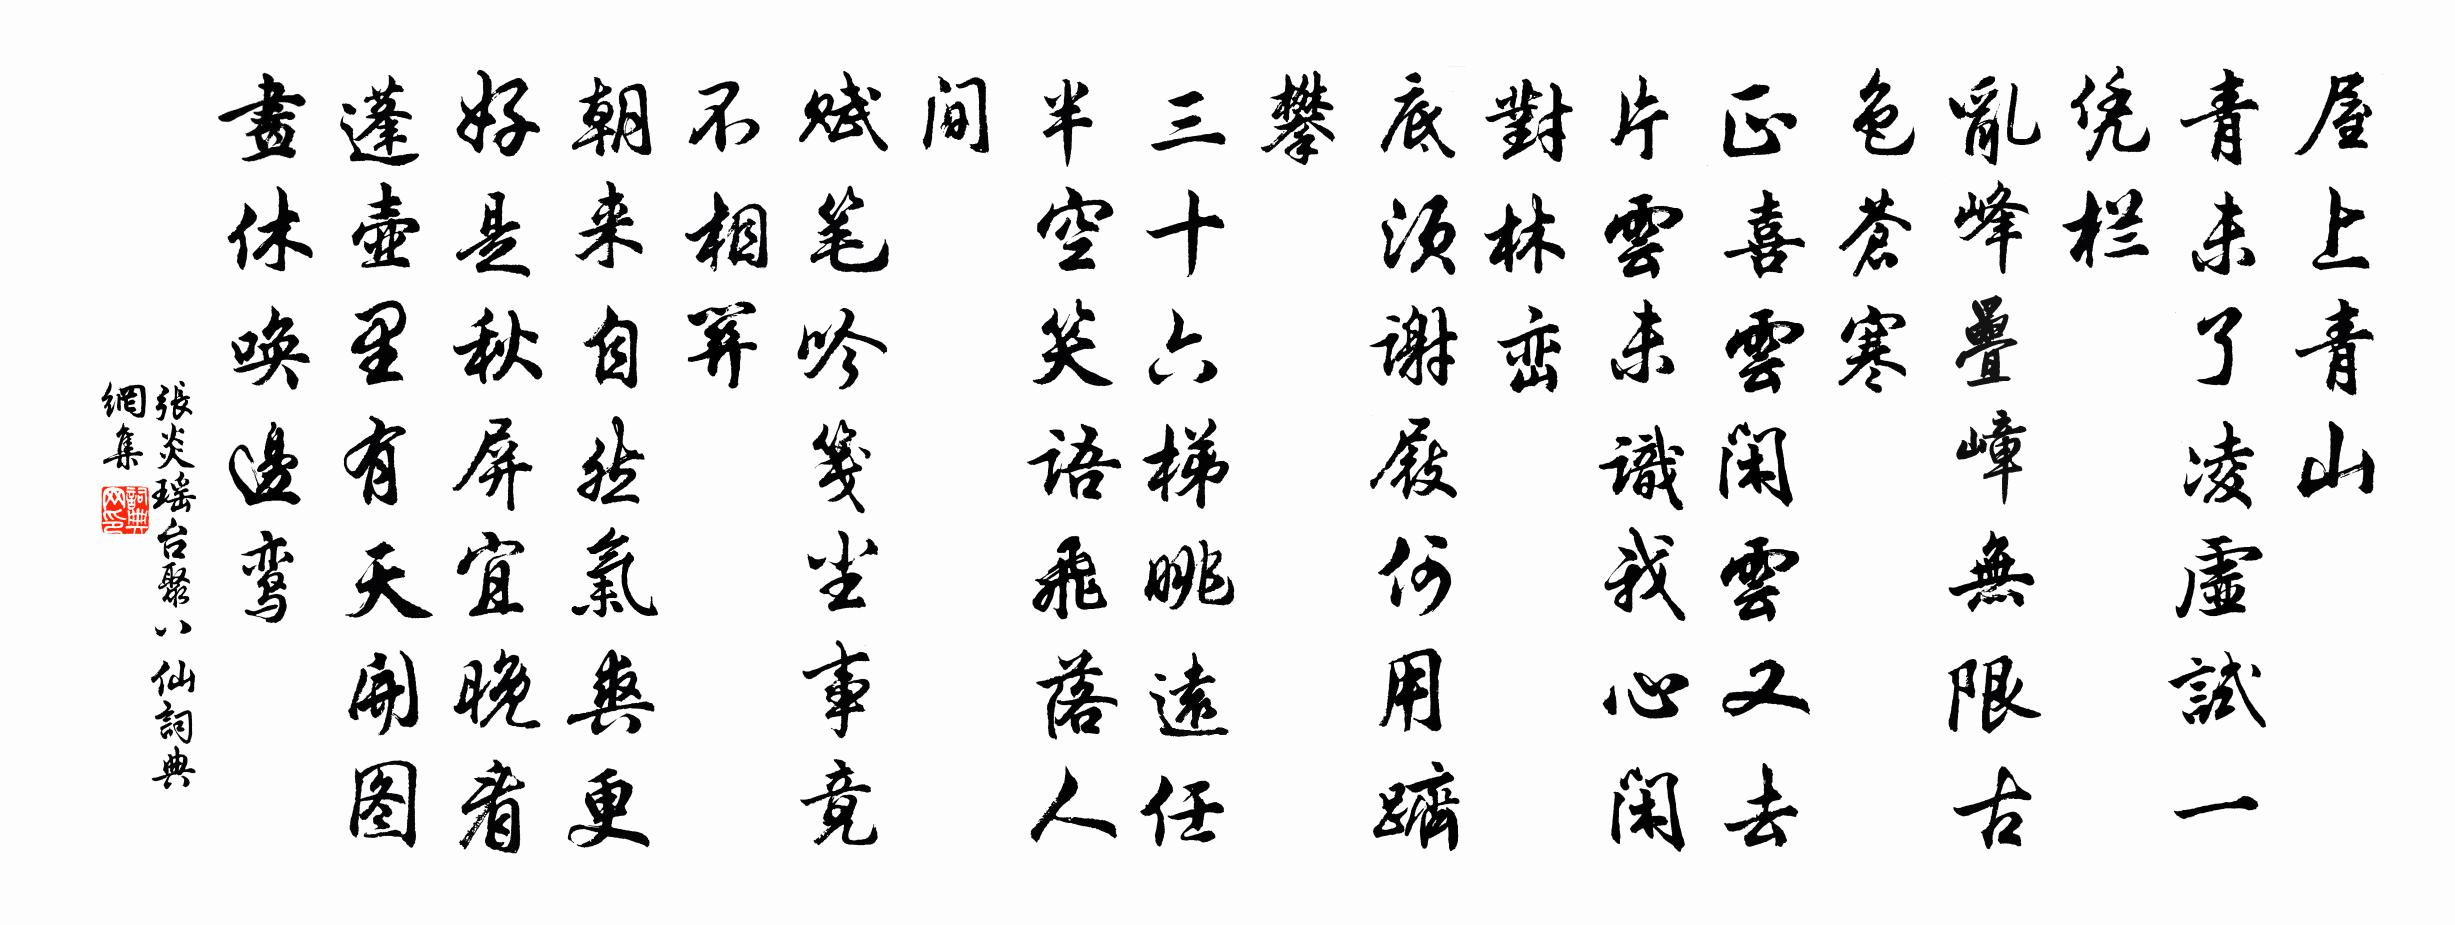 屋上青山
青未了凌虚試一
凭栏
亂峰疊嶂無限古
色蒼寒
正喜雲閑雲又去
片雲未識我心閑
對林巒
底須謝屐何用躋
攀
三十六梯眺遠任
半空笑語飛落人
间
赋笔吟笺尘事竟
不相関
朝来自然氣爽更
好是秋屏宜晚看
蓬壺里有天開图
畫休唤邊鸾
張炎瑶台聚八仙詞典
網集
詞典
网印